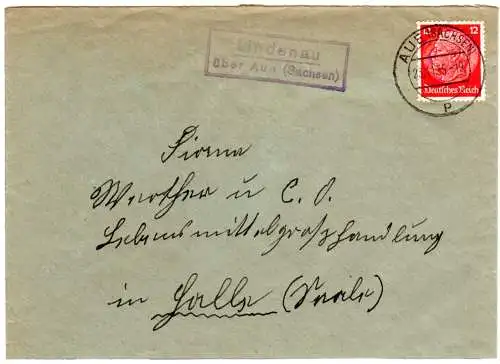 Lindenau
über Aue (Sachsen)
AUE (SACHSEN)
12 12
Deutsches Reich
P
Firma
Werther u C. O.
Lebensmittelgroßhandlung
in Halle (Saale)